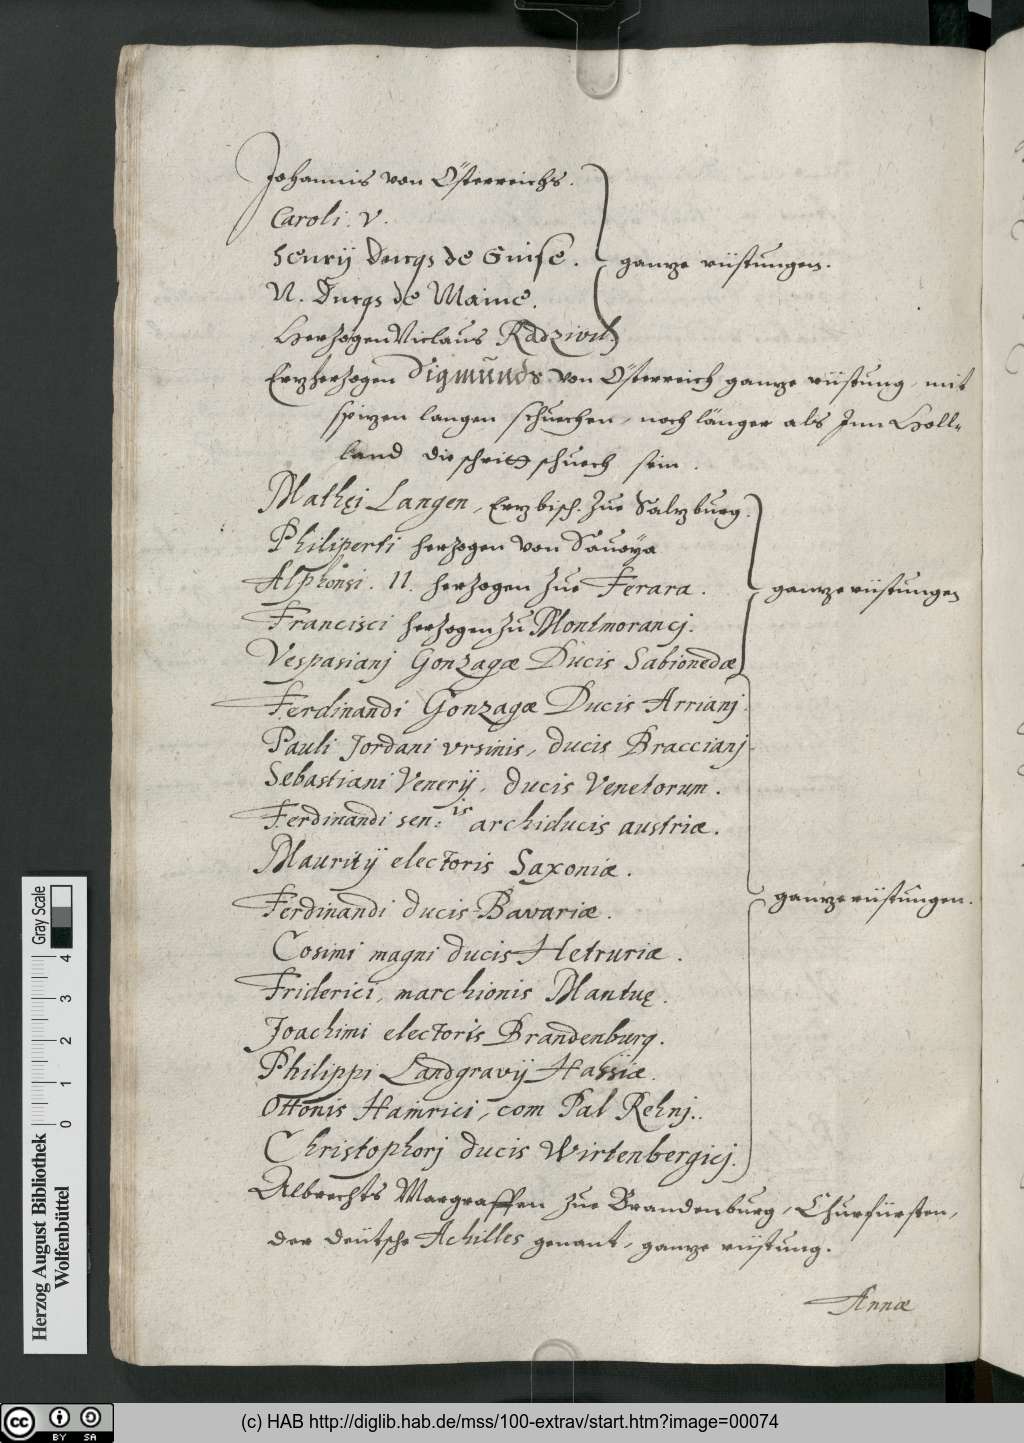 Johannis von Österreichs.
Caroli. V.
Henrÿ Ducqs de Guise.
N. Ducqs de Maine.
Herzogen Niclaus Radzivil
gantze rüstungen.
Ertzherzogen Sigmunds von Österreich gantze rüstung, mit
spitzen langen schuechen, noch länger als Inn Holl-
land die schritt schuech sein.
Mathęi Langen, Ertzbisch. Zue Saltzburg.
Philiperti herzogen von Sauoÿa
Alphonsi. II. herzogen Zue Ferara.
Francisci herzogen zu Montmorancj.
Vespasianj Gonzagæ Ducis Sabionedæ
gantze rüstungen
Ferdinandi Gonzagæ Ducis Arrianj.
Pauli Jordani vrsinis, ducis Braccianj
Sebastiani Venerÿ, ducis Venetorum.
Ferdinandi sen:is archiducis austriæ.
Mauritÿ electoris Saxoniæ.
Ferdinandi ducis Bavariæ.
Cosimi magni ducis Hetruriæ.
Friderici, marchionis Mantuę.
Joachimi electoris Brandenburg.
Philippi Landgravÿ Hassiæ.
Ottonis Hainrici, com Pal Rehnj.
Christophorj ducis Wirtenbergicj.
gantze rüstungen.
Albrechts Margraffen zue Brandenburg, Churfürsten,
der deütsche Achilles genant, gantze rüstung.
Annæ
Gray Scale
0 1 2 3 4
Herzog August Bibliothek
Wolfenbüttel
cc BY SA
(c) HAB http://diglib.hab.de/mss/100-extrav/start.htm?image=00074